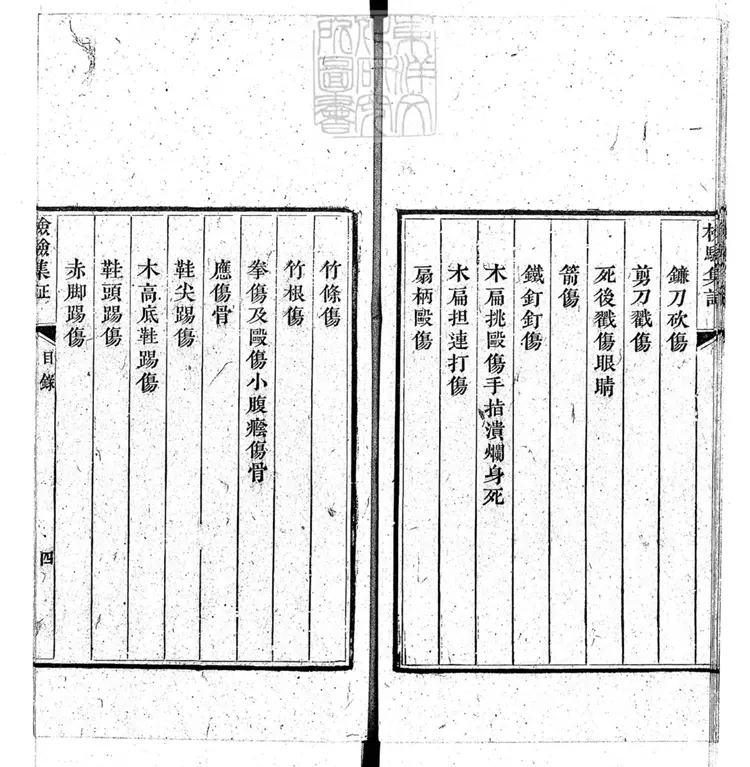 東洋文
化研究
所圖書
檢驗集證
鐮刀砍傷
剪刀戳傷
死後戳傷眼睛
箭傷
鐵釘釘傷
木扁挑毆傷手指潰爛身死
木扁担連打傷
扇柄毆傷
竹條傷
竹根傷
拳傷及毆傷小腹癊傷骨
應傷骨
鞋尖踢傷
木高底鞋踢傷
鞋頭踢傷
赤脚踢傷
檢驗集証
目錄
四